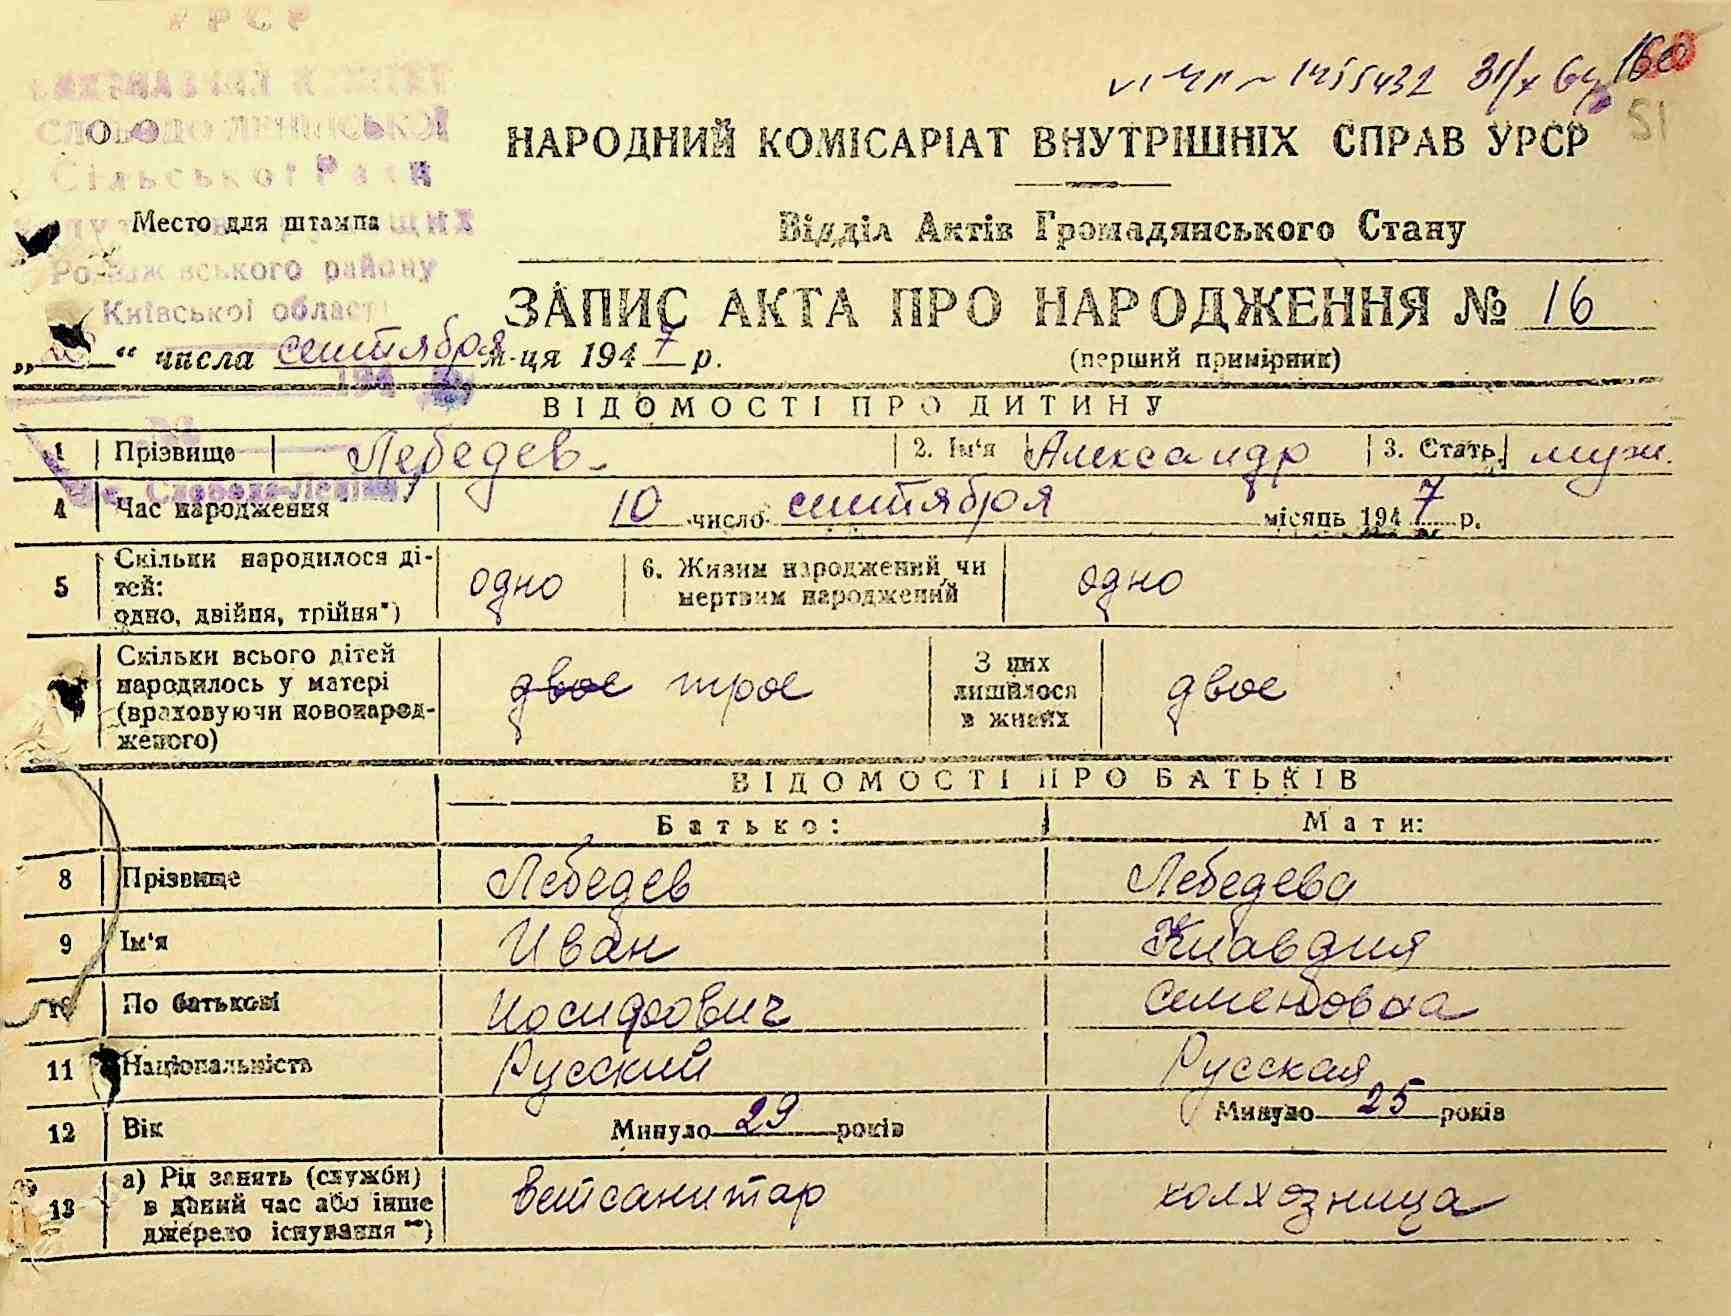 УРСР
160
VI ЧП № 1455432 31/X 64
51
ВИКОНАВЧИЙ КОМІТЕТ
СЛОБОДО ЛЕНІНСЬКОЇ
Сільської Ради
Розважівського району
Київської області
Место для штампа
НАРОДНИЙ КОМІСАРІАТ ВНУТРІШНІХ СПРАВ УРСР
Відділ Актів Громадянського Стану
ЗАПИС АКТА ПРО НАРОДЖЕННЯ № 16
(перший примірник)
„ “ числа сентября м-ця 1947 р.
194
ВІДОМОСТІ ПРО ДИТИНУ
1 Прізвище Лебедев 2. Ім‘я Александр 3. Стать муж.
с. Слобода-Леніна
4 Час народження 10 число сентября місяць 1947 р.
5 Скільки народилося ді-
тей:
одно, двійня, трійня*) одно 6. Живим народжений чи
мертвим народжений одно
Скільки всього дітей
народилось у матері
(враховуючи новонарод-
женого) двое трое З них
лишилося
в живих двое
ВІДОМОСТІ ПРО БАТЬКІВ
Батько: Мати:
8 Прізвище Лебедев Лебедева
9 Ім‘я Иван Клавдия
10 По батькові Иосифович Семеновна
11 Національність Русский Русская
12 Вік Минуло 29 років Минуло 25 років
13 а) Рід занять (служби)
в даний час або інше
джерело існування **) ветсанитар колхозница